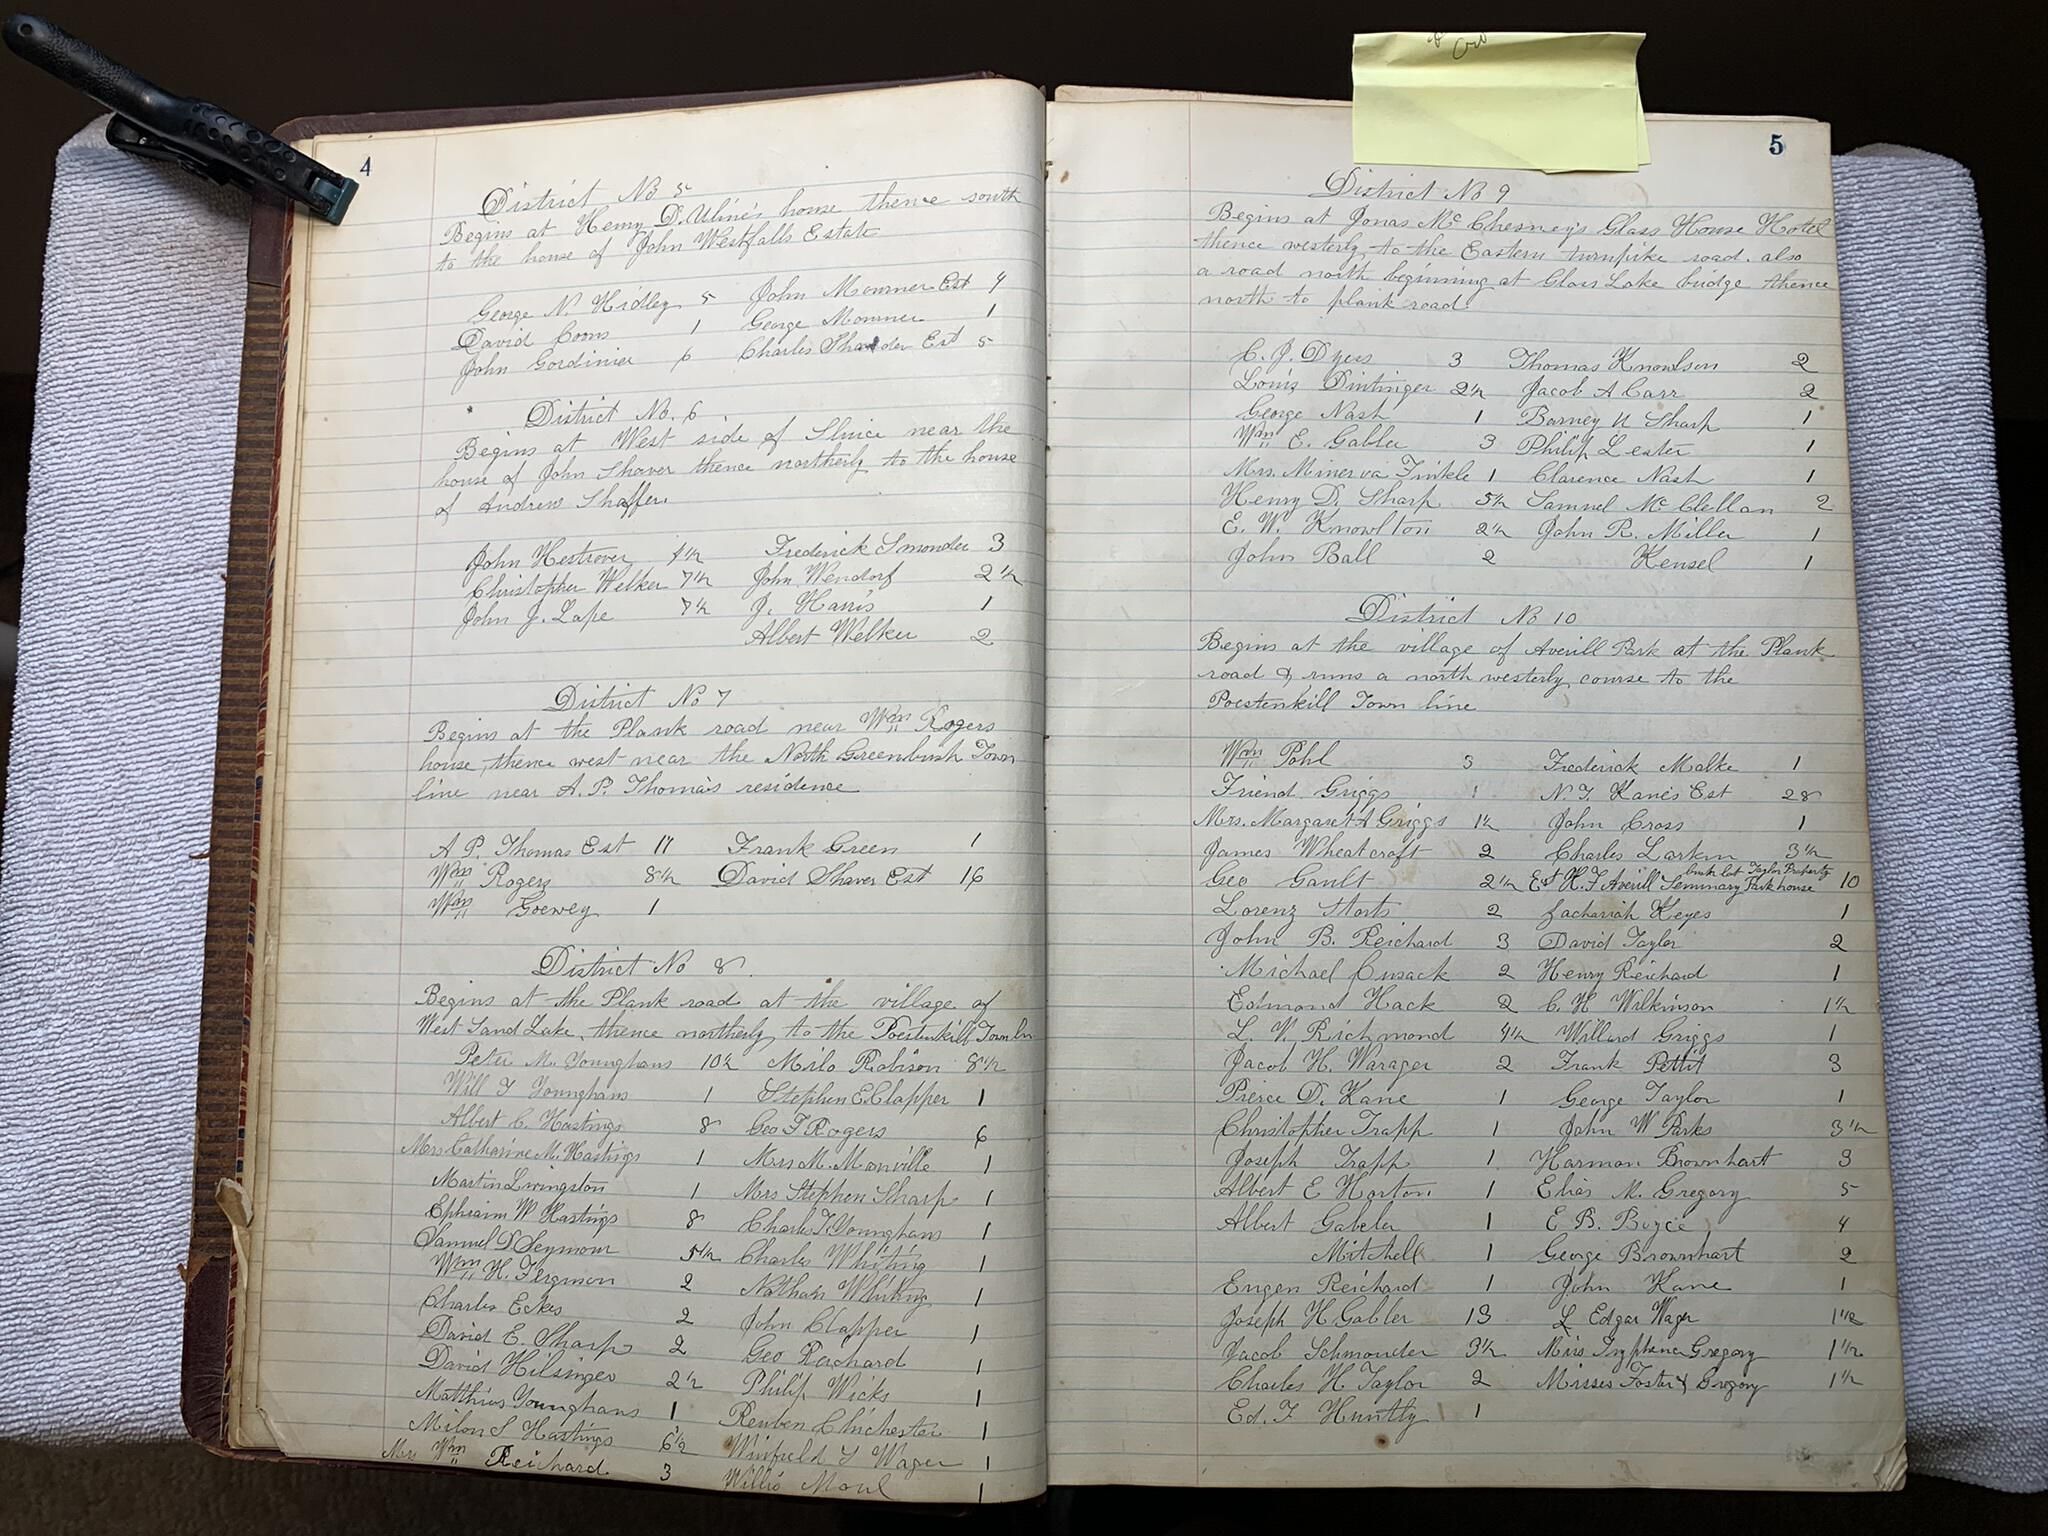 4
District No 5
Begins at Henry D. Uline's house thence south
to the house of John Westfalls Estate
George N. Hidley 5 John Mourner Est 4
David Coons 1 George Mourner 1
John Gordinier 6 Charles Est 5
District No. 6
Begins at West side of Sluice near the
house of John Shaver thence northerly to the house
of Andrew Shaffer.
John Hestrover Frederick Smonder 3
Christopher Welker 7½ John Wendorf 2½
John J. Lape 7½ J. Harris 1
Albert Welker 2
District No 7
Begins at the Plank road near Wm Rogers
house, thence west near the North Greenbush Town
line near A. P. Thomas residence
A P. Thomas Est Frank Green 1
Wm Rogers 8½ David Shaver Est 16
Wm Goewey 1
District No 8.
Begins at the Plank road at the village of
West Sand Lake, thence northerly to the Poestenkill Town
Peter M. Younghans 10½ Milo Robison 8½
Will T Younghans 1 Stephen E. Clapper 1
Albert C. Hastings 8 Geo F Rogers 6
Mrs Catharine M. Hastings 1 Mrs M. Manville 1
Martin Livingston 1 Mrs Stephen Sharp 1
Ephraim W Hastings 8 Charles F. Younghans 1
Samuel D Seymour 5½ Charles Whiting 1
Wm H. Ferguson 2 Nathan Whiting 1
Charles Eckes 2 John Clapper 1
David E. Sharp 2 Geo Reichard 1
David Hilsinger 2½ Philip Wicks 1
Matthias Younghans 1 Reuben Chichester 1
Milon S Hastings 6½ Winfield S Wager 1
Mrs Wm Reichard 3 Willis Moul 1
5
District No 9
Begins at Jonas Mc Chesney's Glass House Hotel
thence westerly to the Eastern turnpike road. also
a road north beginning at Glass Lake bridge thence
north to plank road.
C. J. Dyers 3 Thomas Knowlson 2
Louis Dintinger 2½ Jacob A Carr 2
George Nash 1 Barney N Sharp 1
Wm E. Gabler 3 Philip Lester 1
Mrs. Minerva Finkle 1 Clarence Nash 1
Henry D. Sharp 5½ Samuel Mc Clellan 2
E. W. Knowlton 2½ John R. Miller 1
John Ball 2 Kensel 1
District No 10
Begins at the village of Averill Park at the Plank
road & runs a north westerly course to the
Poestenkill Town line
Wm Pohl 3 Frederick Malke 1
Friend Griggs 1 N. T. Kane's Est 28
Mrs. Margaret A Griggs 1½ John Cross 1
James Wheatcroft 2 Charles Larkin 3½
lot Taylor Property
Geo Gault 2½ Est H. F Averill Seminary Park house 10
Lorenz Storts 2 Zachariah Keyes 1
John B. Reichard 3 David Taylor 2
Michael Cusack 2 Henry Reichard 1
Edmond Hack 2 C. H Wilkinson 1½
L. V. Richmond 4½ Willard Griggs 1
Jacob H. Warager 2 Frank Pettit 3
Pierce D. Kane 1 George Taylor 1
Christopher Trapp 1 John W Parks 3½
Joseph Trapp 1 Harman Brownhart 3
Albert E Horton 1 Elias M. Gregory 5
Albert Gabeler 1 E B. Boyce 4
Mitchell 1 George Brownhart 2
Eugen Reichard 1 John Kane 1
Joseph H Gabler 13 L Edgar Wager 1½
Jacob Schmonder 3½ Mrs Tryphena Gregory 1½
Charles H. Taylor 2 Misses Foster & Gregory 1½
Ed. F Huntly 1